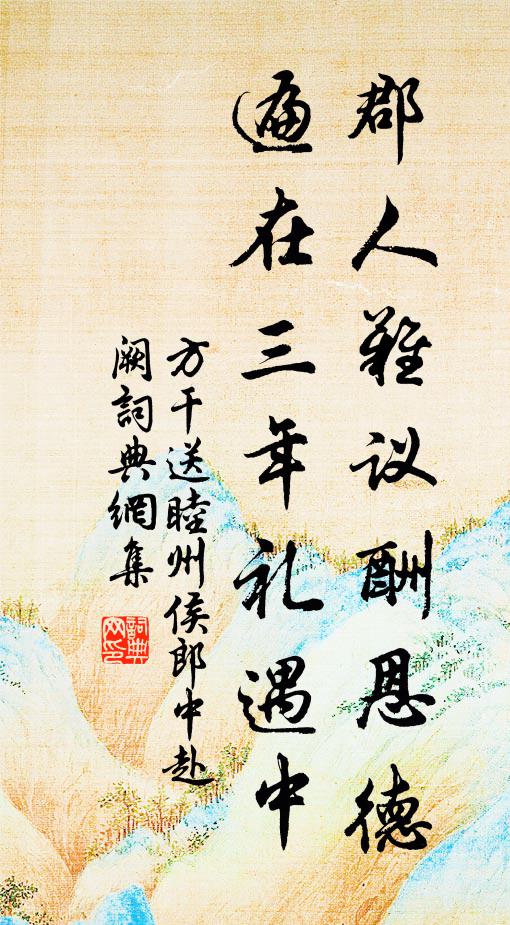 郡人难议酬恩德
遍在三年礼遇中
方干送睦州侯郎中赴
阙詞典網集
詞典
网印